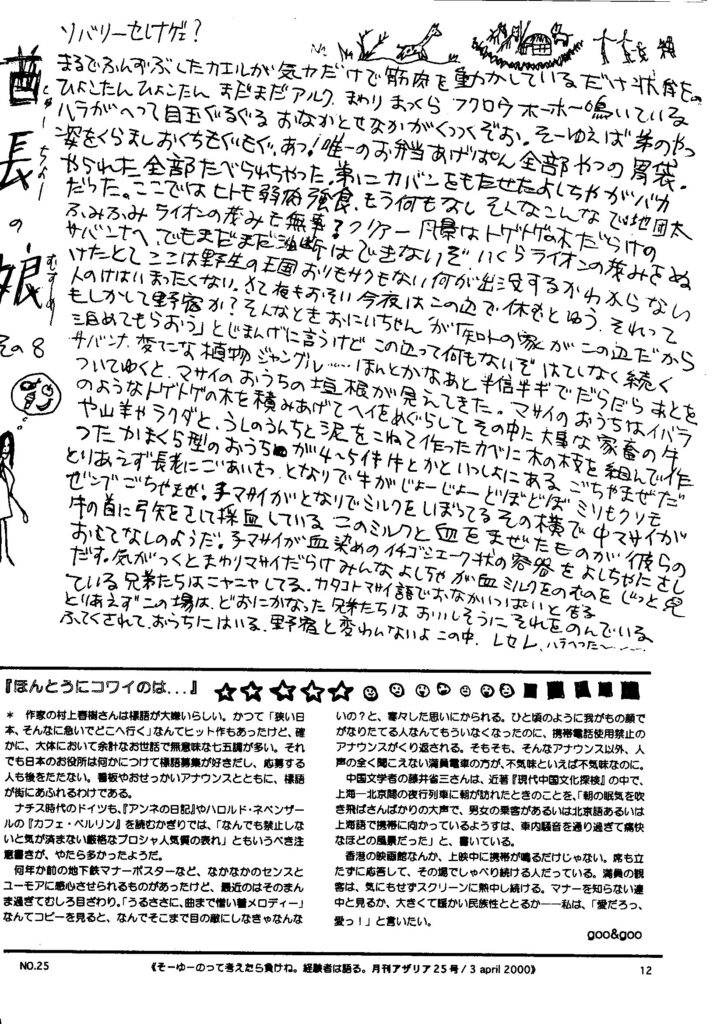 ソバリーセレナゲェ?
酋長の娘 その8
しゅーちょー
むすめ
まるでふんずぶしたカエルが気力だけで筋肉を動かしているだけ状態を。
ひょこたんひょこたん まだまだアルク。まわりまっくら フクロウ ホーホー鳴いている
ハラがへって目玉ぐるぐる おなかとせなかがくっつくぞお。そーゆえば弟のやつ
姿をくらましおくちもぐもぐ。あっ!唯一のお弁当あげぱん全部やつの胃袋。
やられた。全部たべられちゃった。弟にカバンをもたせたよしちゃがバカ
だった。ここではヒトも弱肉強食、もう何もなし そんなこんなで地団太
ふみふみ ライオンの茂みも無事?クリアー 風景はトゲトゲの木だらけの
サバンナへ、でもまだまだ油断はできないぞ、いくらライオンの茂みをぬ
けたとて ここは野生の王国 おりもサクもない 何が出没するかわからない
人のけはいまったくない。さて夜もおそい 今夜はこの辺で休もとゆう。それって
もしかして野宿か?そんなときおにいちゃんが「知人の家がこの辺だから
泊めてもらおう」とじまんげに言うけど この辺って何もないぞ はてしなく続く
サバンナ、変てこな植物ジャングル……ほんとかなあと半信半ギでだらだらあとを
ついてゆくと、マサイのおうちの垣根が見えてきた。マサイのおうちはイバラ
のようなトゲトゲの木を積みあげてヘイをめぐらして その中に大事な家畜の牛
や山羊やラクダと、うしのうんちと泥をこねて作ったカベに木の枝を組んで作
ったかまくら型のおうちが4〜5件件とかといっしょにある。ごちゃまぜだ
とりあえず長老にごあいさつ、となりで牛がじょーじょーどぼどぼ ミソもクソも
ゼンブごちゃまぜ。子マサイがとなりでミルクをしぼってる その横で中マサイが
牛の首に弓矢をさして採血している このミルクと血をまぜたものが彼らの
おもてなしのようだ。子マサイが血染めのイチゴシェーク状の容器をよしちゃにさし
だす。気がつくとまわりマサイだらけみんなよしちゃが血ミルクをのむのをじっと見
ている兄弟たちはニヤニヤしてる。カタコトマサイ語でおなかいっぱいと告る
とりあえずこの場は、どおにかなった 兄弟たちはおいしそうにそれをのんでいる
ふてくされて、おうちにはいる、野宿と変わんないよこの中、レセレ、ハラへった〜
『ほんとうにコワイのは...』
* 作家の村上春樹さんは標語が大嫌いらしい。かつて「狭い日
本、そんなに急いでどこへ行く」なんてヒット作もあったけど、確
かに、大体において余計なお世話で無意味な七五調が多い。それ
でも日本のお役所は何かにつけて標語募集が好きだし、応募する
人も後をたたない。看板やおせっかいアナウンスとともに、標語
が街にあふれるわけである。
ナチス時代のドイツも、『アンネの日記』やハロルド・ネベンザー
ルの『カフェ・ベルリン』を読むかぎりでは、「なんでも禁止しな
いと気が済まない厳格なプロシャ人気質の表れ」ともいうべき注
意書きが、やたら多かったようだ。
何年か前の地下鉄マナーポスターなど、なかなかのセンスと
ユーモアに感心させられるものがあったけど、最近のはそのまん
ま過ぎてむしろ目ざわり。「うるささに、曲まで憎い着メロディー」
なんてコピーを見ると、なんでそこまで目の敵にしなきゃなんな
いの?と、寒々した思いにかられる。ひと頃のように我がもの顔で
がなりたてる人なんてもういなくなったのに、携帯電話使用禁止の
アナウンスがくり返される。そもそも、そんなアナウンス以外、人
声の全く聞こえない満員電車の方が、不気味といえば不気味なのに。
中国文学者の藤井省三さんは、近著『現代中国文化探検』の中で、
上海―北京間の夜行列車に朝が訪れたときのことを、「朝の眠気を吹
き飛ばさんばかりの大声で、男女の乗客があるいは北京語あるいは
上海語で携帯に向かっているようすは、車内騒音を通り過ぎて痛快
なほどの風景だった」と、書いている。
香港の映画館なんか、上映中に携帯が鳴るだけじゃない。席も立
たずに応答して、その場でしゃべり続ける人だっている。満員の観
客は、気にもせずスクリーンに熱中し続ける。マナーを知らない連
中と見るか、大きくて暖かい民族性ととるか──私は、「愛だろっ、
愛っ!」と言いたい。
goo&goo
NO.25
《そーゆーのって考えたら負けね。経験者は語る。月刊アザリア25号/3 april 2000》
12